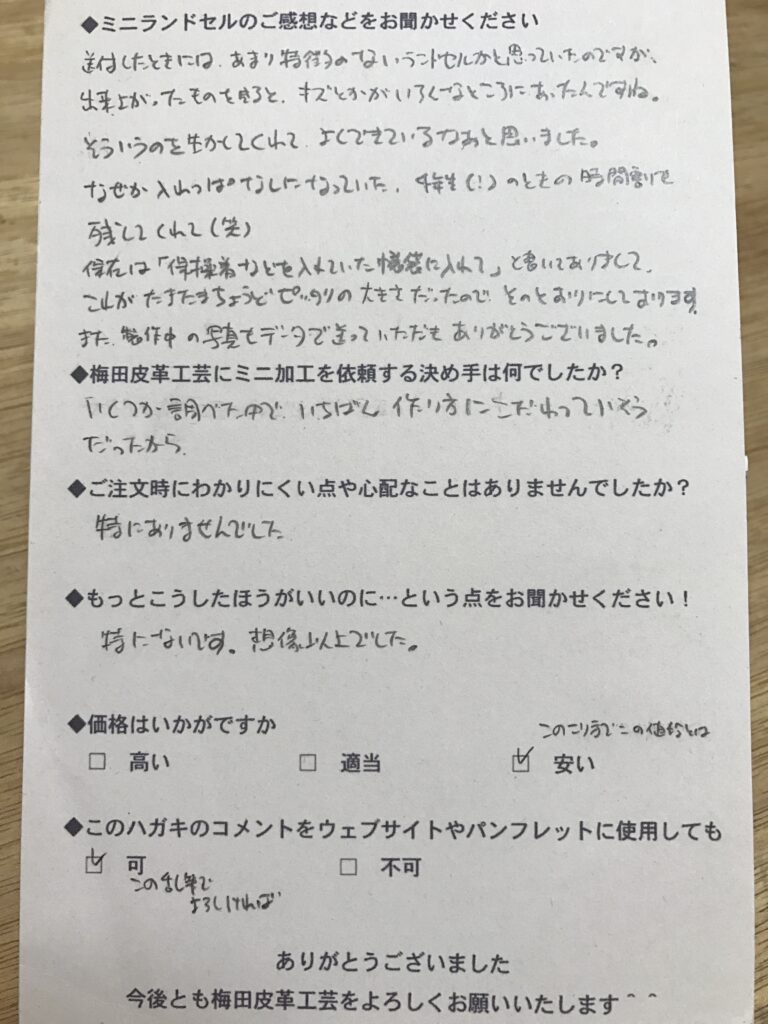 ◆ミニランドセルのご感想などをお聞かせください
送付したときには、あまり特徴のないランドセルかと思っていたのですが、
出来上がったものを見ると、キズとかがいろいろなところにあったんですね。
そういうのを生かしてくれて、よくできているなあと思いました。
なぜか入れっぱなしになっていた、4年生(!)のときの時間割も
残してくれて(笑)
保存は「体操着などを入れていた巾着袋に入れて」と書いてありまして、
これがたまたまちょうどピッタリの大きさだったので、そのとおりにしております。
また、製作中の写真もデータで送っていただき、ありがとうございました。
◆梅田皮革工芸にミニ加工を依頼する決め手は何でしたか?
いくつか調べた中で、いちばん作り方にこだわっていそう
だったから。
◆ご注文時にわかりにくい点や心配なことはありませんでしたか?
特にありませんでした
◆もっとこうしたほうがいいのに…という点をお聞かせください!
特にないです。想像以上でした。
◆価格はいかがですか
このこり方でこの価格とは
□ 高い □ 適当 ☑ 安い
◆このハガキのコメントをウェブサイトやパンフレットに使用しても
☑ 可 □ 不可
この乱筆で
よろしければ
ありがとうございました
今後とも梅田皮革工芸をよろしくお願いいたします＾＾